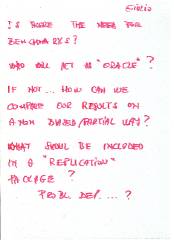 IS THERE THE NEED FOR
BENCHMARKS?
WHO WILL ACT AS "ORACLE"?
IF NOT... HOW CAN WE
COMPARE OUR RESULTS ON
A NON BIASED/PARTIAL WAY?
WHAT SHOULD BE INCLUDED
IN A "REPLICATION"
PACKAGE?
PROBL. DEF. ... ?